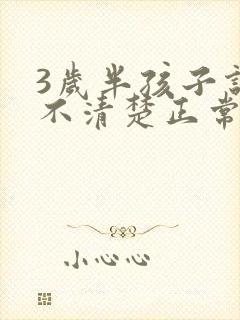 3歲半孩子說
不清楚正常
小心心